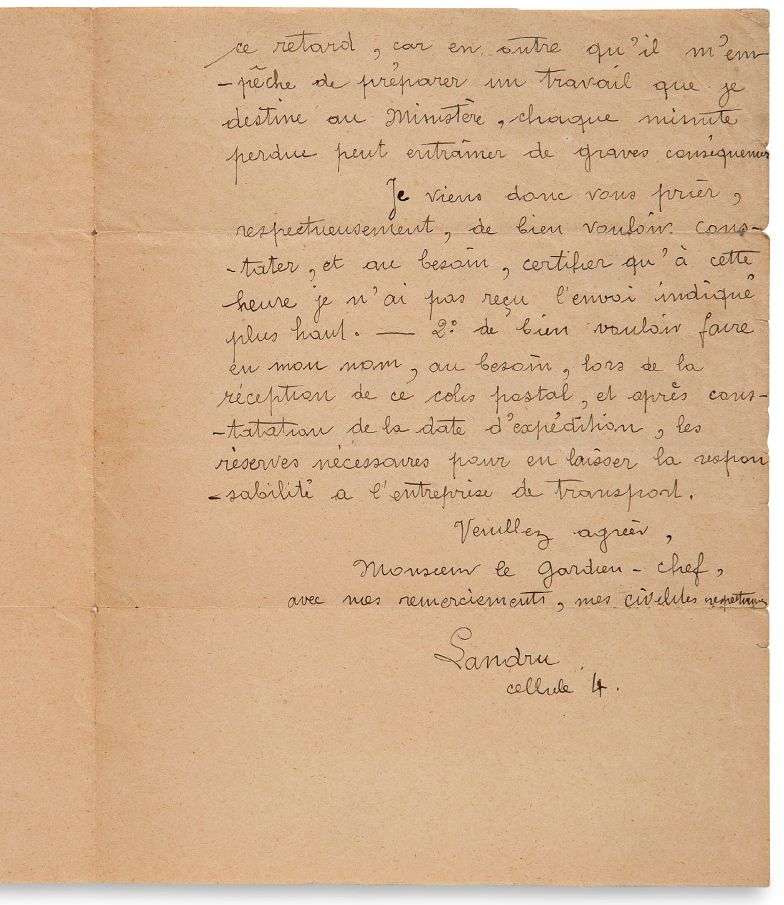 ce retard, car en outre qu'il m'em-
-pêche de préparer un travail que je
destine au Ministère, chaque minute
perdue peut entraîner de graves conséquences
Je viens donc vous prier,
respectueusement, de bien vouloir cons-
-tater, et au besoin, certifier qu'à cette
heure je n'ai pas reçu l'envoi indiqué
plus haut. — 2º de bien vouloir faire
en mon nom, au besoin, lors de la
réception de ce colis postal, et après cons-
-tatation de la date d'expédition, les
réserves nécessaires pour en laisser la respon
-sabilité a l'entreprise de transport.
Veuillez agréer,
Monsieur le Gardien-chef,
avec mes remerciements, mes civilités respectueuses
Landru
cellule 4.